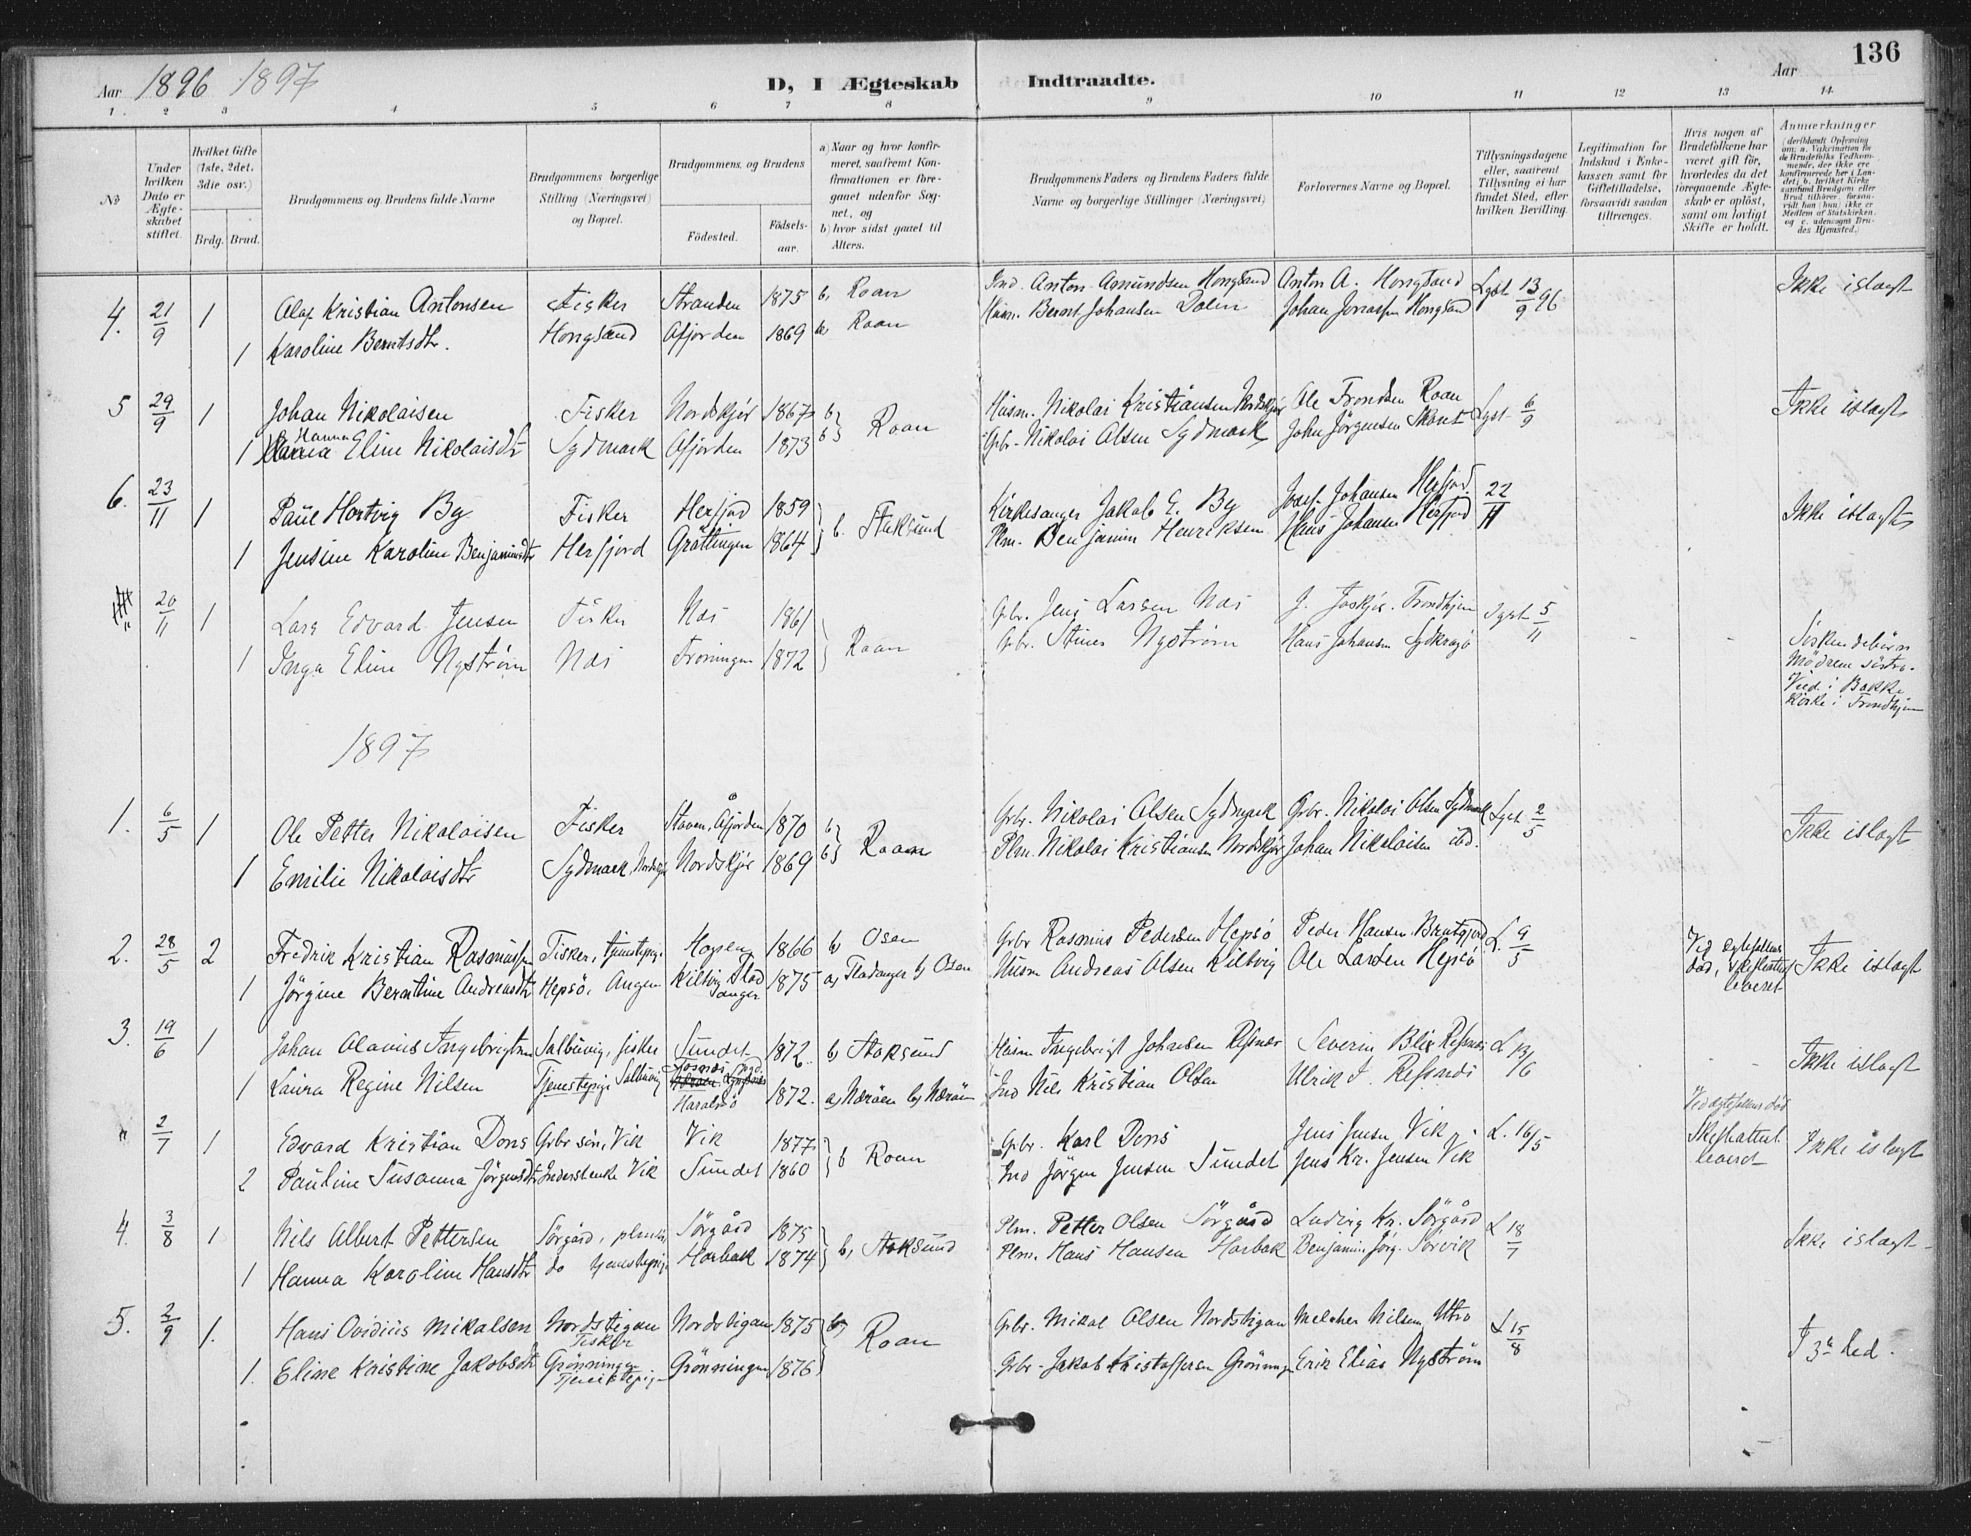 136
Aar 1896 1897 D, I Ægteskab Indtraadte. Aar
1. 2 3 4 5 6 7 8 9 10 11 12 13 14
No
Under hvilken Dato er Ægteskabet stiftet.
Hvilket Gifte (1ste, 2det, 3die osv.)
Brdg. Brud.
Brudgommens og Brudens fulde Navne
Brudgommens borgerlige Stilling (Næringsvei) og Bopæl.
Brudgommens og Brudens
Fødested. Fødselsaar.
a) Naar og hvor konfirmeret, saafremt Konfirmationen er foregaaet udenfor Sognet, og
b) hvor sidst gaaet til Alters.
Brudgommens Faders og Brudens Faders fulde Navne og borgerlige Stillinger (Næringsvei)
Forlovernes Navne og Bopæl.
Tillysningsdagene eller, saafremt Tillysning ei har fundet Sted, efter hvilken Bevilling.
Legitimation for Indskud i Enkekassen samt for Giftetilladelse, forsaavidt saadan tiltrænges.
Hvis nogen af Brudefolkene har været gift før, hvorledes da det foregaaende Ægteskab er opløst, samt om lovligt Skifte er holdt.
Anmerkninger
4. 21/9 1 Olaf Kristian Antonsen Fisker Stranden 1875 b, Roan Ind. Anton Amundsen Hongsand Anton A. Hongsand Lyst 13/9 96 Ikke islagt
1 Karoline Berntsdtr. Hongsand Afjorden 1869 b Roan Husm. Bernt Johansen Dalen Johan Jonassen Hongsand
5 29/9 1 Johan Nikolaisen Fisker Nordskjør 1867 b Roan Husm. Nikolai Kristiansen Nordskjør Ole Trondsen Roan Lyst 6/9 Ikke islagt
1 Hanna Eline Nikolaisdtr Sydmark Afjorden 1873 b Gbr. Nikolai Olsen Sydmark John Jörgensen
6. 23/11 1 Paul Hartvig By Fisker Herfjord 1859 b. Stoksund Kirkesanger Jakob E. By Johansen Herfjord 22/11 Ikke islagt
1 Jensine Karoline Benjaminsdtr Herfjord Gråttingen 1864 Plm. Benjamin Henriksen Hans Johansen Herfjord
20/11 1 Lars Edvard Jensen Fisker Nes 1861 Roan Gbr. Jens Larsen Nes J. Trondhjem Lyst 5/11
1 Inga Eline Nystrøm Nes 1872 Gbr. Nystrøm Hans Johansen Søskendebørn Mødrene søstre. Viet i Bakke Kirke i Trondhjem
1897
1. 6/5 1 Ole Petter Nikolaisen Fisker Staven, Åfjorden 1870 b Roan Gbr. Nikolai Olsen Sydmark Gbr. Nikolai Olsen Sydmark Lyst 2/5 Ikke islagt
1 Emilie Nikolaisdtr Sydmark, Nordskjør Nordskjør 1869 b Plm. Nikolai Kristiansen Nordskjør Johan Nikolaisen ibd.
2. 28/5 2 Fredrik Kristian Rasmussen Fisker, tjenstepige 1866 b Osen Gbr Rasmus Pedersen Hepsø Peder Hansen L. 9/5 Ved egtefellens død, Skifteattest leveret Ikke islagt
1 Jörgine Berntine Andreasdtr Hepsö, Angen Kilvig Fladanger 1875 a) Fladanger b) Osen Husm Andreas Olsen Kilvig Ole Larsen Hepsö
3. 19/6 1 Johan Olavus Ingebrigtsen Salbuvig, fisker Sundet 1872. b) Stoksund Husm Ingebrigt Johansen Refsnes Severin Blix Refsnes L 13/6 Ikke islagt
1 Laura Regine Nilsen Tjenestepige Salbuvig Haralsö 1872. a) Nærøen b) Nærøen Ind Nils Kristian Olsen Ulrik J. Refsnes
" 2/7 1 Edvard Kristian Dons Gbr søn, Vik Vik 1877 b Roan Gbr. Karl Dons Jens Jensen Vik L. 16/5 Ved egtefellens død Skifteattest leveret Ikke islagt
2 Pauline Susanna Jörgensdtr Inderstenke Vik Sundet 1860 Ind Jörgen Jensen Sundet Jens Kr. Jensen Vik
4. 3/8 1 Nils Albert Pettersen Sörgård, Sörgård 1875 b, Stoksund Plm. Petter Olsen Sörgård Ludvig Kr. Sörgård L 18/7 Ikke islagt
1 Hanna Karoline Hansdtr do tjenestepige Harbak 1874 Plm. Hans Hansen Harbak Benjamin Jörg. Sörvik
5. 2/9 1. Hans Ovidius Mikalsen Nordstigan Fisker Nordstigan 1875 b) Roan Gbr. Mikal Olsen Nordstigan Melcher Nilsen Utro L 15/8 I 3. Led.
1. Eline Kristine Jakobsdtr Grönningen Tjenestepige Grönningen 1876 Gbr. Jakob Kristoffersen Grönningen Erik Elias Nyström